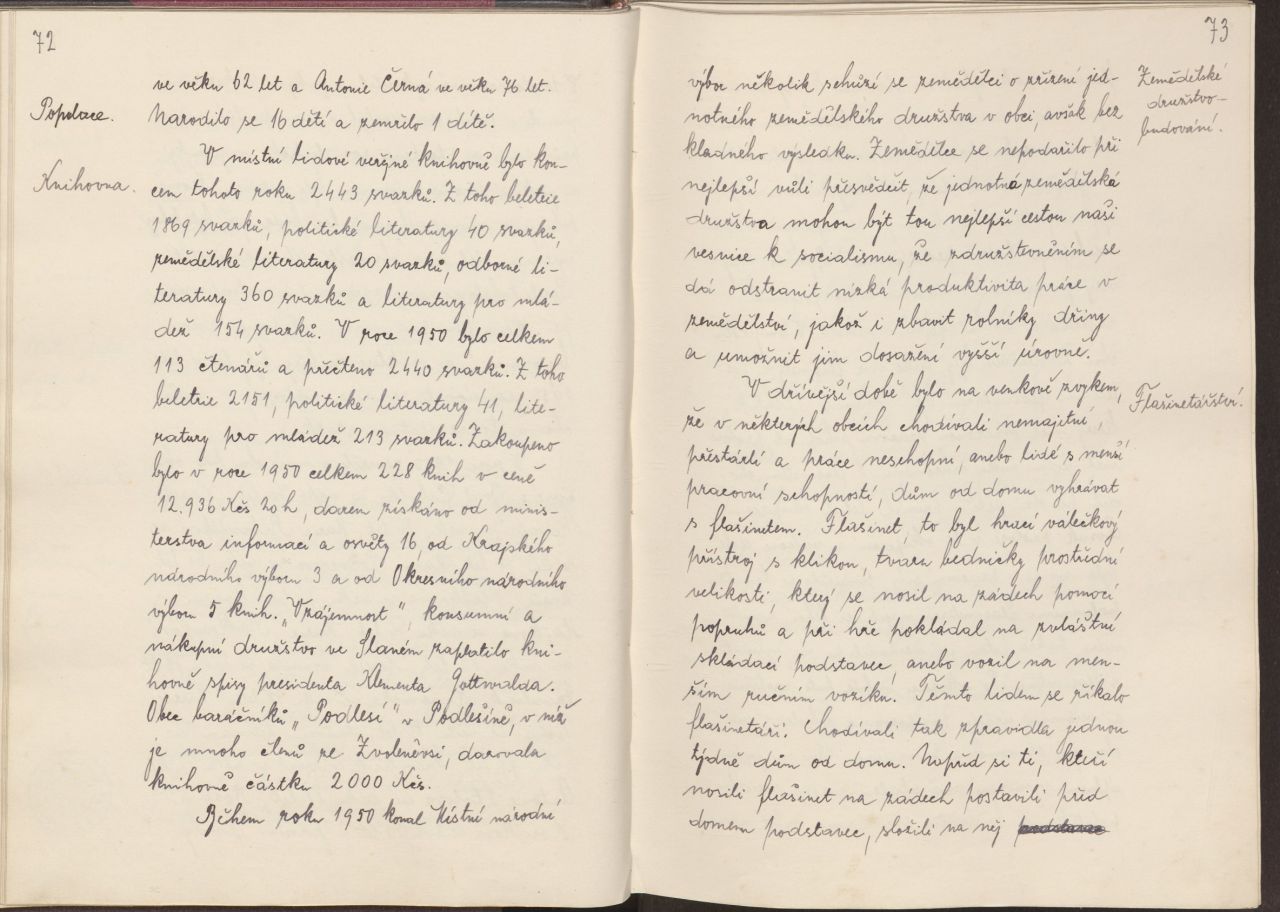 72
ve věku 62 let a Antonie Černá ve věku 76 let.
Populace.
Narodilo se 16 dětí a zemřelo 1 dítě.
V místní lidové veřejné knihovně bylo kon-
Knihovna.
cem tohoto roku 2443 svazků. Z toho beletrie
1869 svazků, politické literatury 40 svazků,
zemědělské literatury 20 svazků, odborné li-
teratury 360 svazků a literatury pro mlá-
dež 154 svazků. V roce 1950 bylo celkem
113 čtenářů a přečteno 2440 svazků. Z toho
beletrie 2151, politické literatury 41, lite-
ratury pro mládež 213 svazků. Zakoupeno
bylo v roce 1950 celkem 228 knih v ceně
12.936 Kčs 20 h, darem získáno od minis-
terstva informací a osvěty 16, od Krajského
národního výboru 3 a od Okresního národního
výboru 5 knih. „Vzájemnost", konsumní a
nákupní družstvo ve Slaném zaplatilo kni-
hovně spisy presidenta Klementa Gottwalda.
Obec baráčníků „Podlesí" v Podlešíně, v níž
je mnoho členů ze Zvoleněvsi, darovala
knihovně částku 2000 Kčs.
Během roku 1950 konal Místní národní
73
výbor několik schůzí se zemědělci o zřízení jed-
Zemědělské
družstvo-
budování.
notného zemědělského družstva v obci, avšak bez
kladného výsledku. Zemědělce se nepodařilo při
nejlepší vůli přesvědčit, že jednotná zemědělská
družstva mohou být tou nejlepší cestou naší
vesnice k socialismu, že združstevněním se
dá odstranit nízká produktivita práce v
zemědělství, jakož i zbavit rolníky dřiny
a umožnit jim dosažení vyšší úrovně.
V dřívější době bylo na venkově zvykem,
Flašinetářství.
že v některých obcích chodívali nemajetní,
přestárlí a práce neschopní, anebo lidé s menší
pracovní schopností, dům od domu vyhrávat
s flašinetem. Flašinet, to byl hrací válečkový
přístroj s klikou, tvaru bedničky prostřední
velikosti, který se nosil na zádech pomocí
popruhů a při hře pokládal na zvláštní
skládací podstavec, anebo vozil na men-
ším ručním vozíku. Těmto lidem se říkalo
flašinetáři. Chodívali tak zpravidla jednou
týdně dům od domu. Napřed si ti, kteří
nosili flašinet na zádech postavili před
domem podstavec, složili na něj podstavec